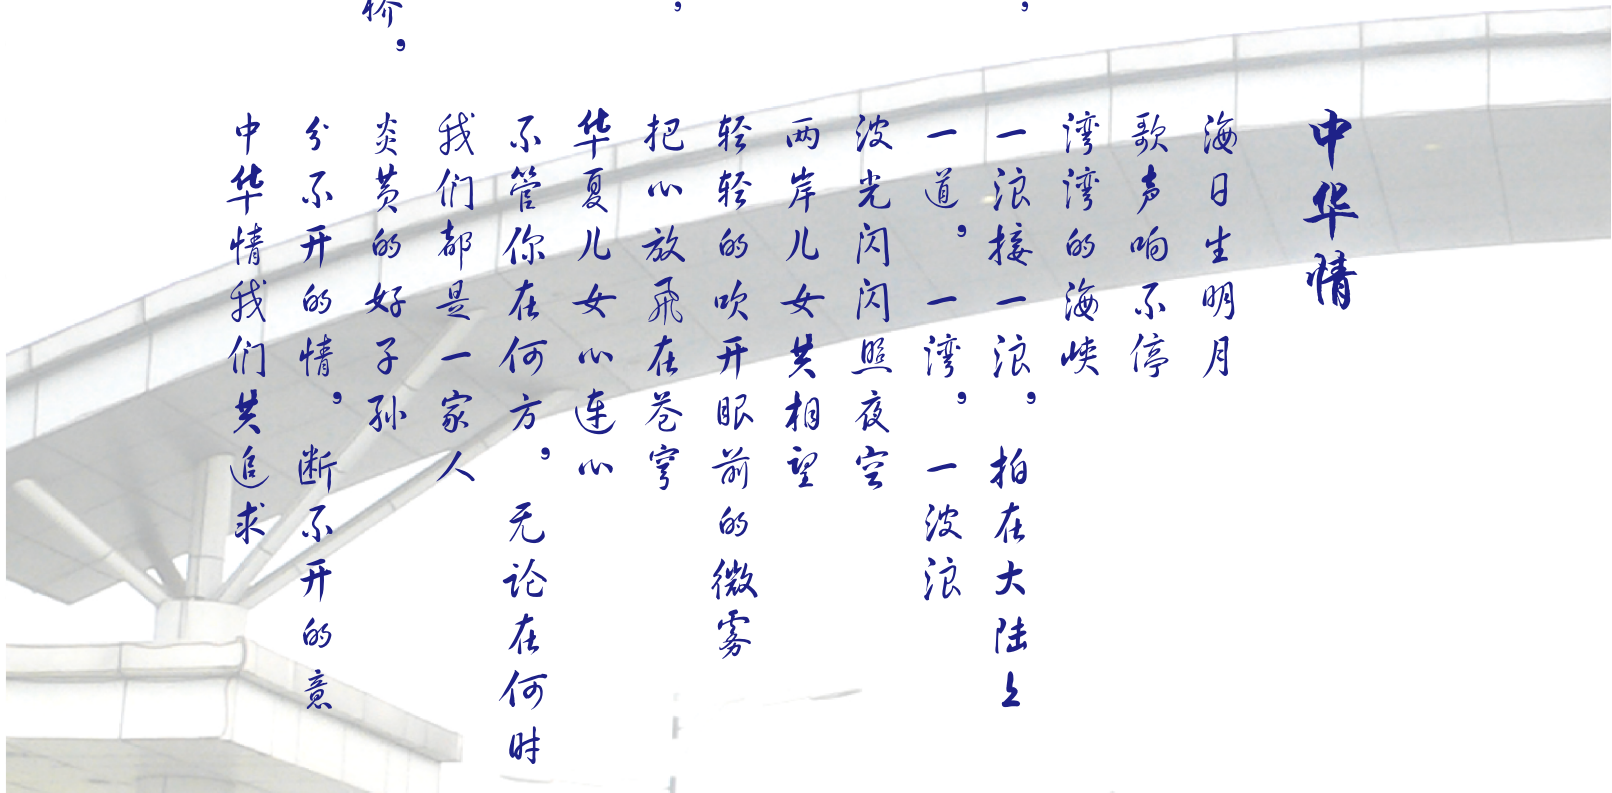 中华情
海日生明月
歌声响不停
湾湾的海峡
一浪接一浪， 拍在大陆上
一道，一湾，一波浪
波光闪闪照夜空
两岸儿女共相望
轻轻的吹开眼前的微雾
把心放飛在苍穹
华夏儿女心连心
不管你在何方，无论在何时
我们都是一家人
炎黄的好子孙
分不开的情， 断不开的意
中华情我们共追求